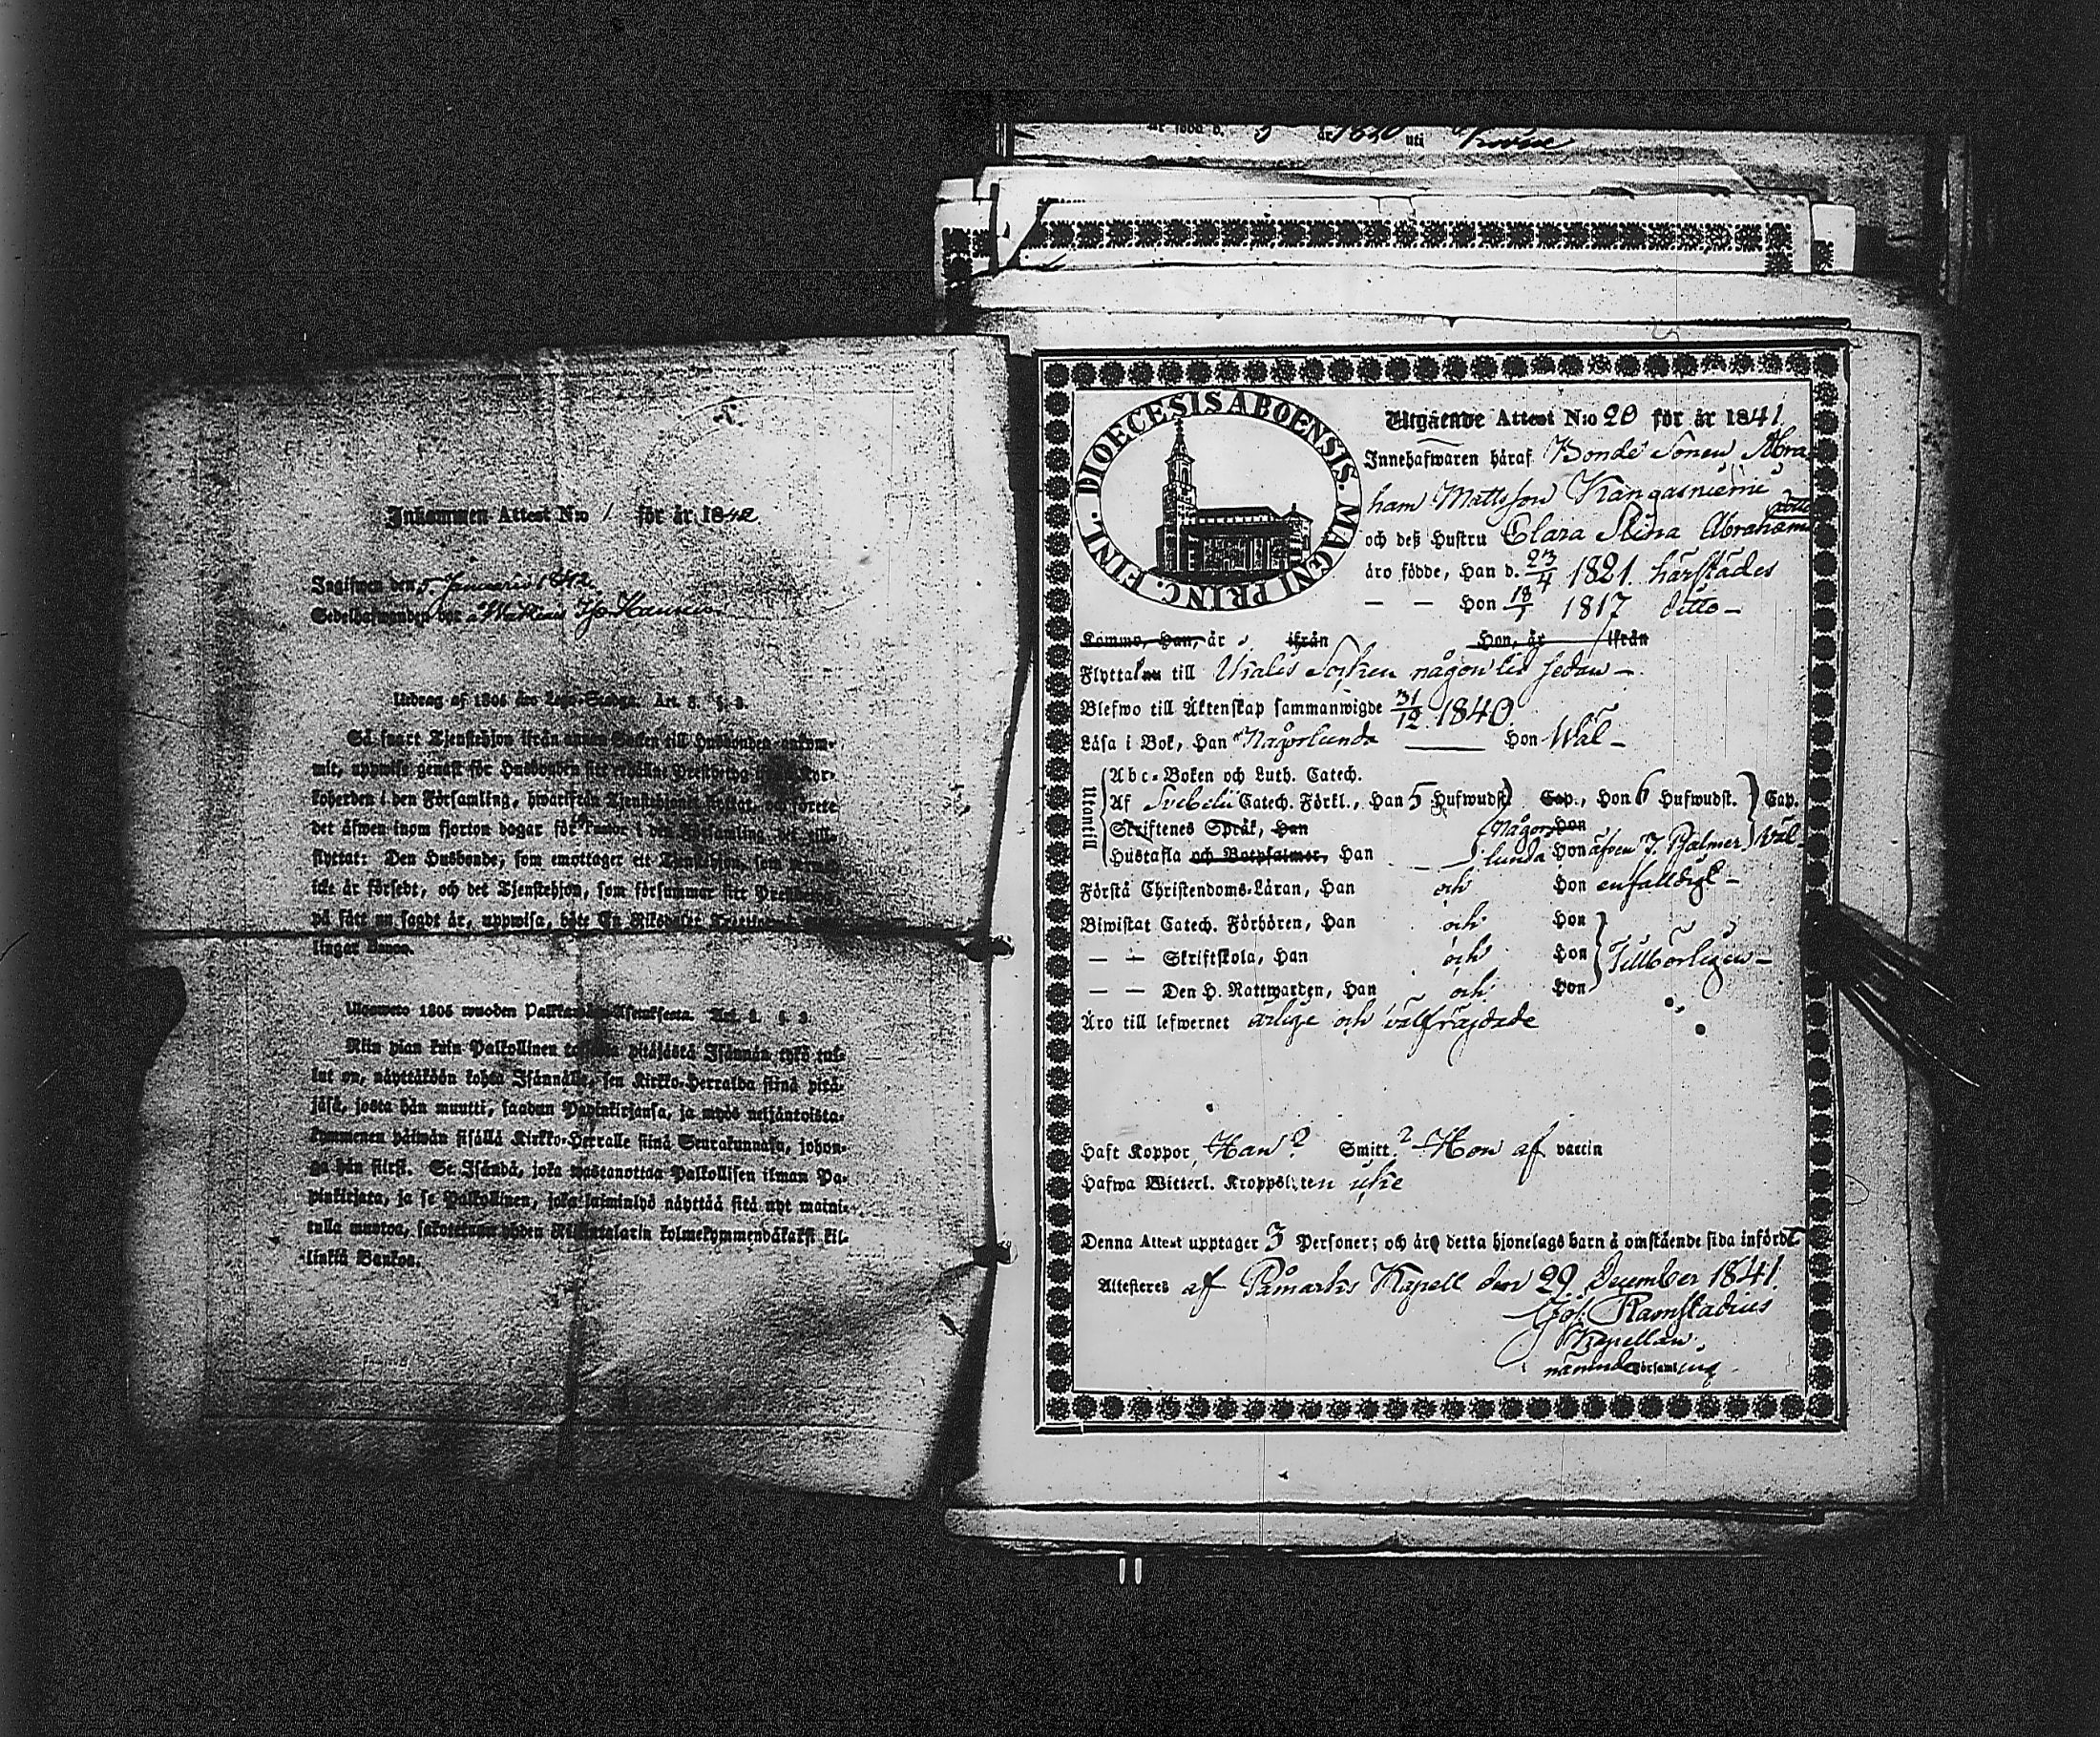 är född d. 5 år 1820 uti
Inkommen Attest N:o 1 för år 1842
Ingifwen den 5 Januarii 1842.
Sedelhafwanden bor å
Utdrag af 1805 års Lego-Stadga. Art. 3. §. 3.
Så snart Tjenstehjon ifrån annan Socken till Husbonden ankom-
mit, uppwise genast för Husbonden sitt erhållne Prestbetyg Kyr-
koherden i den Församling, hwarifrån Tjenstehjonet flyttat, och förete
det äfwen inom fjorton dagar för Pastor i den Församling, det till-
flyttat: Den Husbonde, som emottager ett Tjenstehjon, som
icke är försedt, och det Tjenstehjon, som försummar sitt Prestbetyg
på sätt nu sagdt är, uppwisa, böte En Riksdaler
lingar Banco.
Ulosweto 1805 wuoden Palkka Asetuksesta. Art. 3. §. 3.
Niin pian kuin Palkollinen toisesta pitäjästä Isännän tykö tul-
lut on, näyttäköön kohta Isännälle, sen Kirkko-Herralda siinä pitä-
jäsä, josta hän muutti, saadun Papinkirjansa, ja myös neljäntoista-
kymmenen päiwän sisällä Kirkko-Herralle siinä Seurakunnasa, johon-
ga hän siirsi. Se Isändä, joka wastanottaa Palkollisen ilman Pa-
pinkirjata, ja se Palkollinen, joka laiminlyö näyttää sitä nyt maini-
tulla muotoa, sakotetaan yhden Riksitalarin kolmekymmendäkaksi kil-
linkiä Bankoa.
DIOECESIS ABOENSIS. MAGNI PRINC. FINL.
Utgående Attest N:o 20 för år 1841
Innehafwaren häraf Bonde Sonen Abra-
ham Mattsson Kangasniemi
och deß Hustru Clara Stina Abrahams
dotter
äro födde, Han d. 23/4 1821. härstädes
— — Hon 18/7 1817 ditto —
Komme, Han, år ifrån Hon, år ifrån
Flytta nu till Socken någon tid sedan —
Blefwo till Äktenskap sammanwigde 31/12 1840
Läsa i Bok, Han Någorlunda — Hon Wäl —
Utantill
Abc-Boken och Luth. Catech.
Af Svebelii Catech. Förkl., Han 5 Hufwudst. Cap., Hon 6 Hufwudst. Cap.
Skriftenes Språk, Han Någor- Hon
Hustafla och Botpsalmer, Han lunda Hon äfven 7 Psalmer Väl
Förstå Christendoms-Läran, Han och Hon enfaldigt —
Biwistat Catech. Förhören, Han och Hon
— — Skriftskola, Han och Hon Tillbörligen —
— — Den H. Nattwarden, Han och Hon
Äro till lefwernet ärlige och välfräjdade
Haft Koppor, Han? Smitt.? Hon af vaccin
Hafwa Witterl. Kroppslyten icke
Denna Attest upptager 3 Personer; och äro detta hjonelags barn å omstående sida infördt
Attesteres af Påmarks Kapell den 29 December 1841.
Jos. Ramstadius
Kapellan.
nämnde Församling.